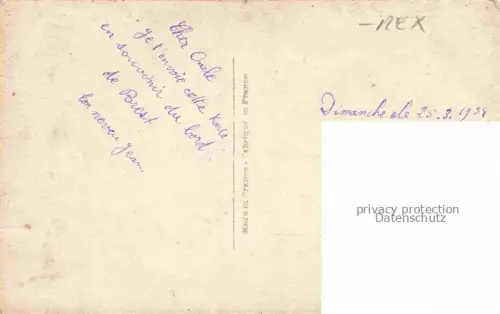 Cher Oncle
Je t'envoie cette Karte
en souvenir du bord
de Brest
ton neveu Jean.
Made in France - Fabriqué en France
-REX
Dimanche le 25.3.1934
privacy protection
Datenschutz